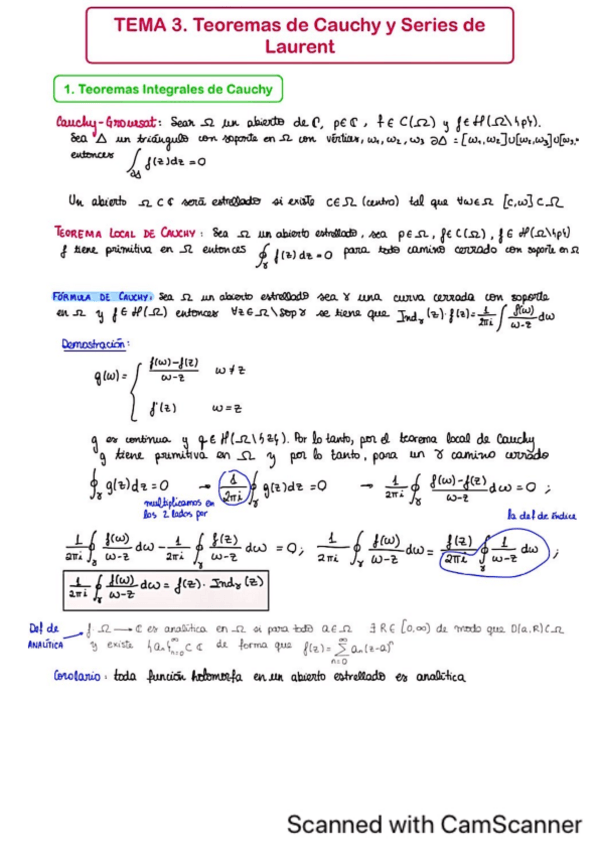 TEMA 3. Teoremas de Cauchy y Series de
Laurent
1. Teoremas Integrales de Cauchy
Cauchy-Groursat: Sean Ω un abierto de ℂ, p∈ℂ, f∈C(Ω) y f∈ℋ(Ω\{p}).
Sea Δ un triángulo con soporte en Ω con vértices, ω₁, ω₂, ω₃ ∂Δ = [ω₁,ω₂]∪[ω₂,ω₃]∪[ω₃,
entonces ∫_∂Δ f(z)dz = 0
Un abierto Ω⊂ℂ será estrellado si existe c∈Ω (centro) tal que ∀ω∈Ω [c,ω]⊂Ω
TEOREMA LOCAL DE CAUCHY: Sea Ω un abierto estrellado, sea p∈Ω, f∈C(Ω), f∈ℋ(Ω\{p})
f tiene primitiva en Ω entonces ∮_γ f(z)dz = 0 para todo camino cerrado con soporte en Ω
FÓRMULA DE CAUCHY: Sea Ω un abierto estrellado sea γ una curva cerrada con soporte
en Ω y f∈ℋ(Ω) entonces ∀z∈Ω\Sop γ se tiene que Ind_γ(z)·f(z) = 1/2πi ∫ f(ω)/(ω-z) dω
Demostración:
g(ω) = { (f(ω)-f(z))/(ω-z) ω≠z
f'(z) ω=z
g es continua y g∈ℋ(Ω\{z}). Por lo tanto, por el teorema local de Cauchy
g tiene primitiva en Ω y por lo tanto, para un γ camino cerrado
∮_γ g(z)dz = 0 → 1/2πi ∮_γ g(z)dz = 0 → 1/2πi ∮_γ (f(ω)-f(z))/(ω-z) dω = 0 ;
multiplicamos en
los 2 lados por
la def de índice
1/2πi ∮_γ f(ω)/(ω-z) dω - 1/2πi ∮_γ f(z)/(ω-z) dω = 0 ; 1/2πi ∮_γ f(ω)/(ω-z) dω = f(z)/2πi ∮_γ 1/(ω-z) dω ;
1/2πi ∮_γ f(ω)/(ω-z) dω = f(z)· Ind_γ(z)
Def de
ANALÍTICA
f: Ω → ℂ es analítica en Ω si para todo a∈Ω ∃R∈[0,∞) de modo que D(a,R)⊂Ω
y existe {aₙ}ₙ₌₀^∞ ⊂ ℂ de forma que f(z) = Σₙ₌₀^∞ aₙ(z-a)ⁿ
Corolario: toda función holomorfa en un abierto estrellado es analítica
Scanned with CamScanner